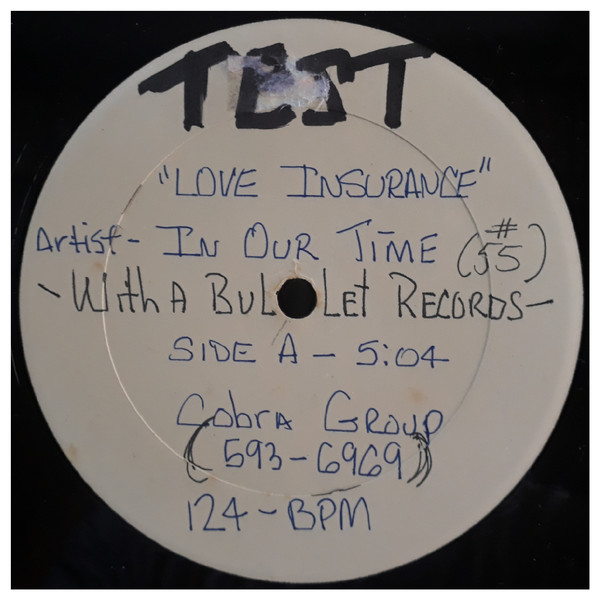 TEST
"LOVE INSURANCE"
Artist - IN OUR TIME (#55)
- With A BulLet RECORDS -
SIDE A - 5:04
Cobra Group
(593-6969)
124 - BPM